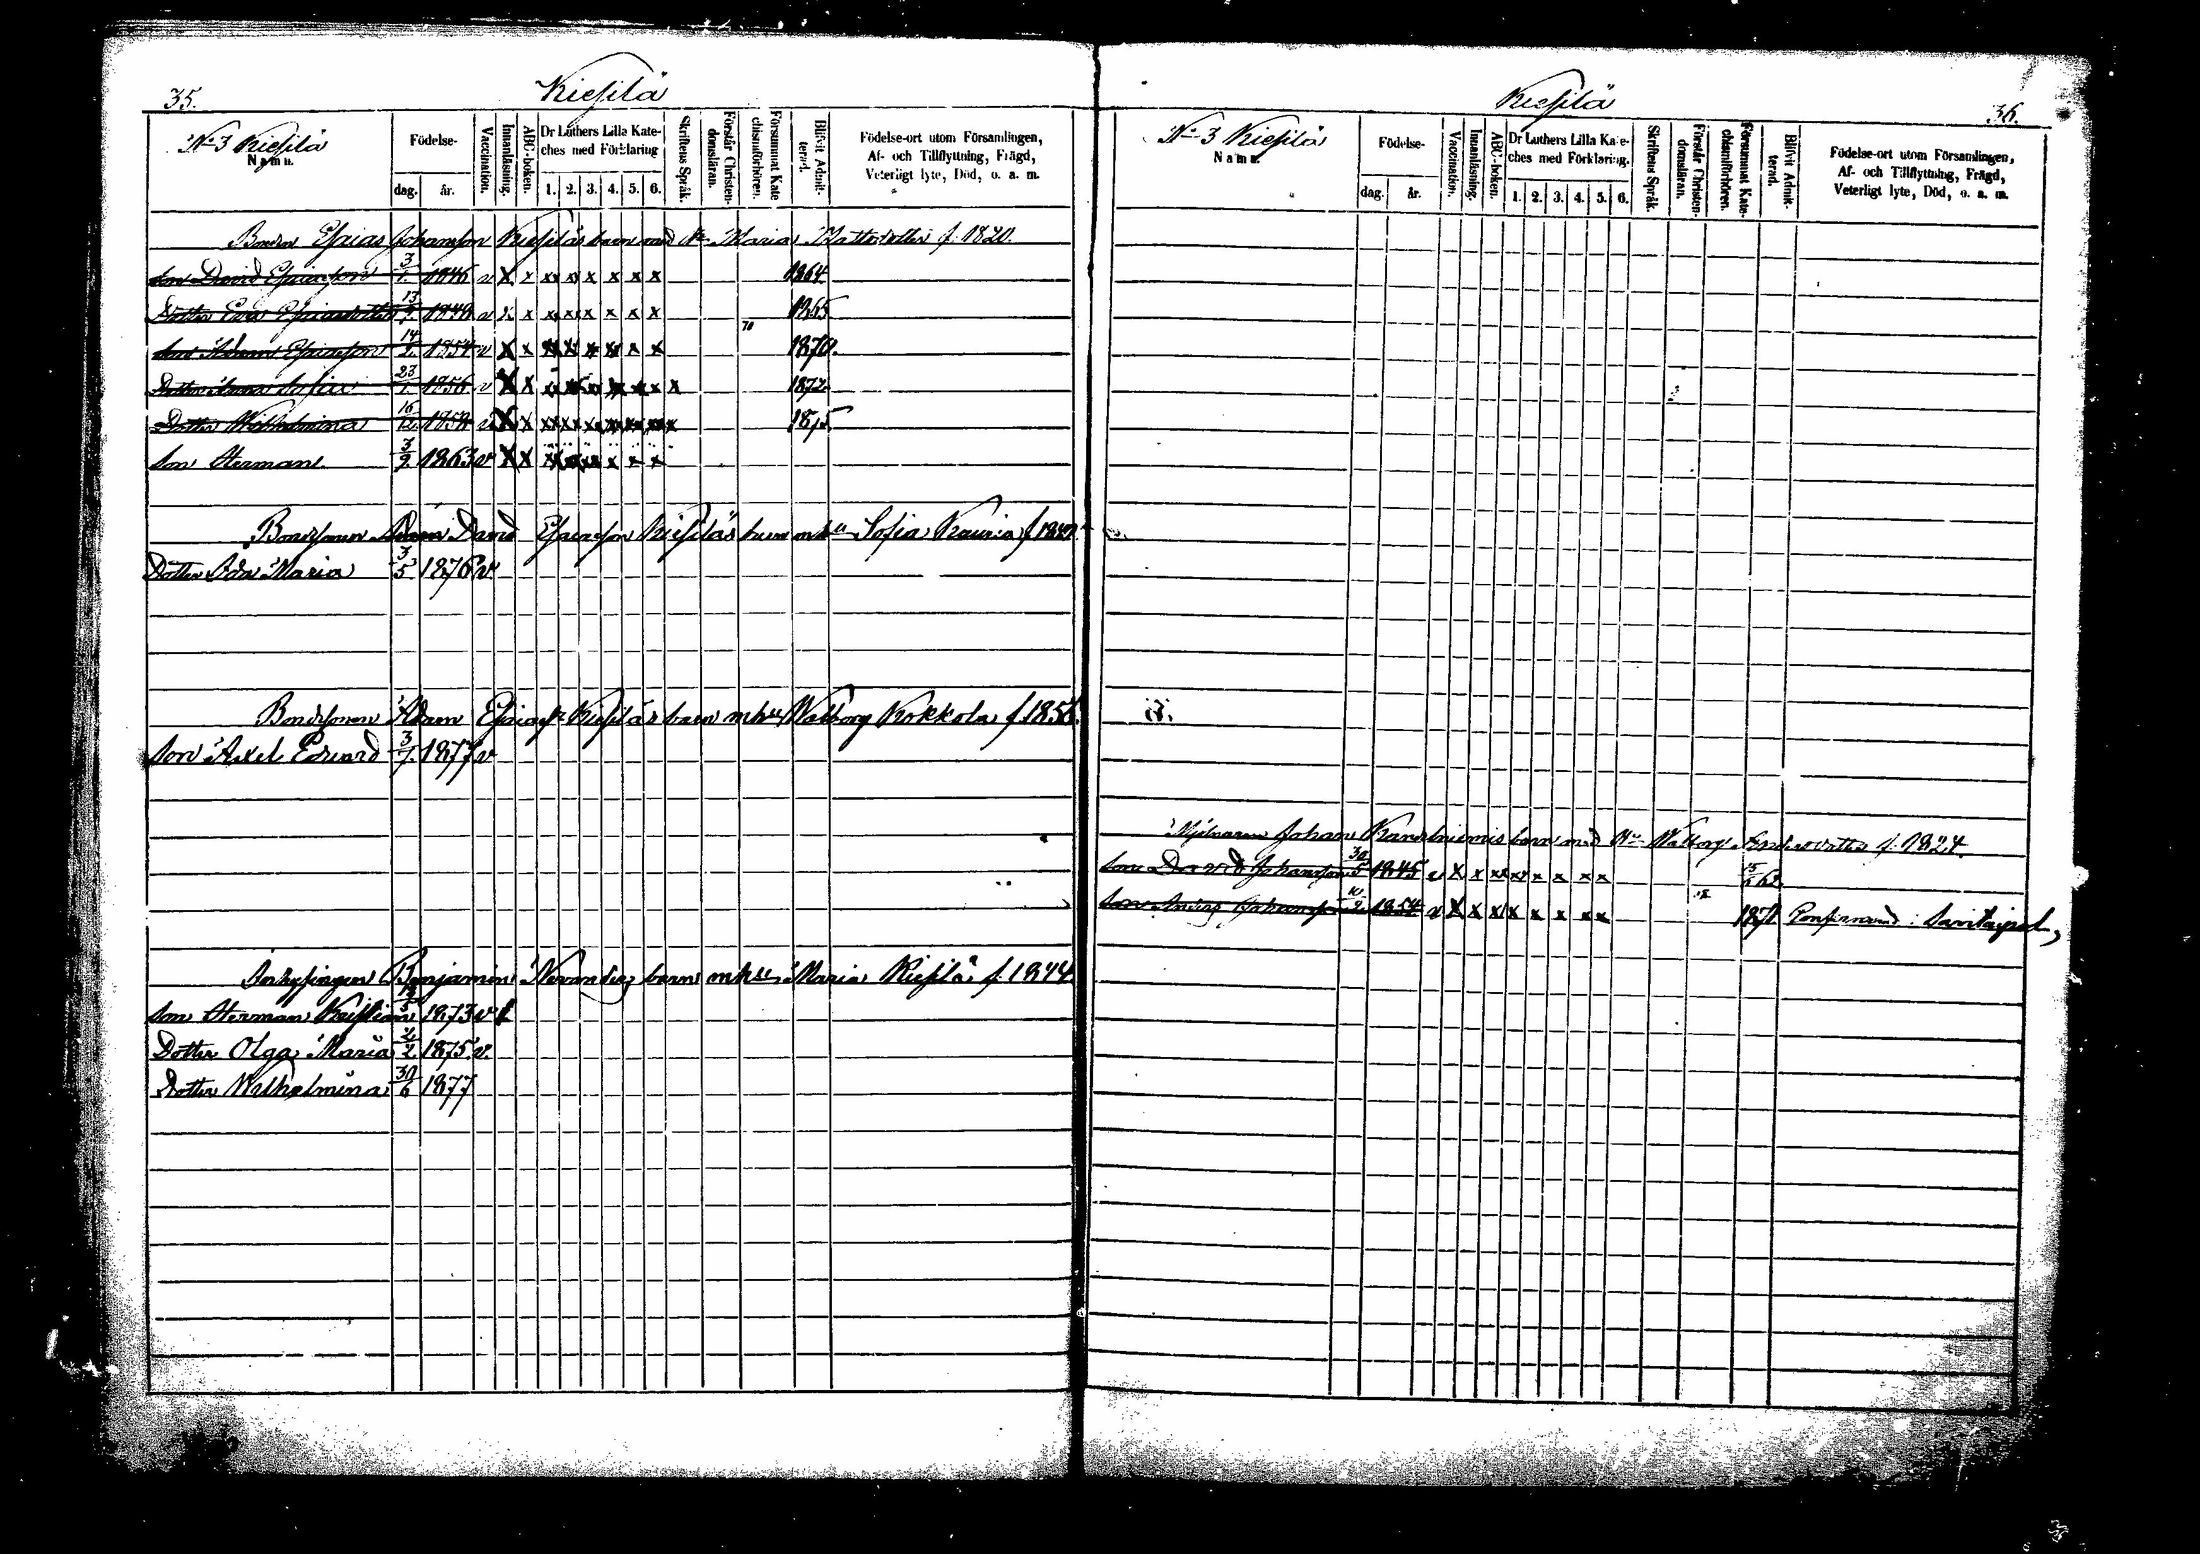 35. Kiesilä
N:o 3 Kiesilä
Namn. Födelse- dag. år. Vaccination. Innanläsning. ABC-boken. Dr Luthers Lilla Kateches med Förklaring 1. 2. 3. 4. 5. 6. Skriftens Språk. Förstår Christendomsläran. Försummat Katechismiförhören. Blifvit Admitterad. Födelse-ort utom Församlingen, Af- och Tillflyttning, Frägd, Veterligt lyte, Död, o. a. m.
Bonden Esaias Johansson Kiesiläs barn med H:u Maria Mattsdotter f. 1820.
Son David Esaiasson 3/1 1846 v x x x x x x x x 1864
Dotter Eva Esaiasdotter 13 1849 v x x x x x x x x 1865
70
Son Adam Esaiasson 14/2 1854 v x x x x x x x x 1870.
Dotter Anna Sofia 23/1 1856 v x x x x x x x x x 1872
Dotter Wilhelmina 16/12 1858 v x x x x x x x x x 1875
Son Herman 3/9 1863 v x x x x x x x x
Bondsonen David Esaiasson Kiesiläs barn m h:u Sofia Kauria f.
Dotter Ida Maria 3/5 1876 v
Bondsonen Adam Esaiass:n Kiesiläs barn m h:u Walborg Kokkola f. 185
Son Axel Edvard 3/7 1877 v
Inhysingen Benjamin barn m h:u Maria Kiesilä f. 1844.
Son Herman Kristian 12/5 1873 v
Dotter Olga Maria 2/2 1875 v
Dotter Wilhelmina 30/6 1877
Kiesilä 36.
N:o 3 Kiesilä
Namn. Födelse- dag. år. Vaccination. Innanläsning. ABC-boken. Dr Luthers Lilla Kateches med Förklaring. 1. 2. 3. 4. 5. 6. Skriftens Språk. Förstår Christendomsläran. Försummat Katechismiförhören. Blifvit Admitterad. Födelse-ort utom Församlingen, Af- och Tillflyttning, Frägd, Veterligt lyte, Död, o. a. m.
Mjölnaren Johan Kanstniemis barn med H:u Walborg Andersdotter f. 1824.
Son David Johansson 30/5 1845 v x x x x x x x x 62
Son Anders Johansson 10/2 1854 v x x x x x x x x 1871 Confirmerad i Savitaipal,